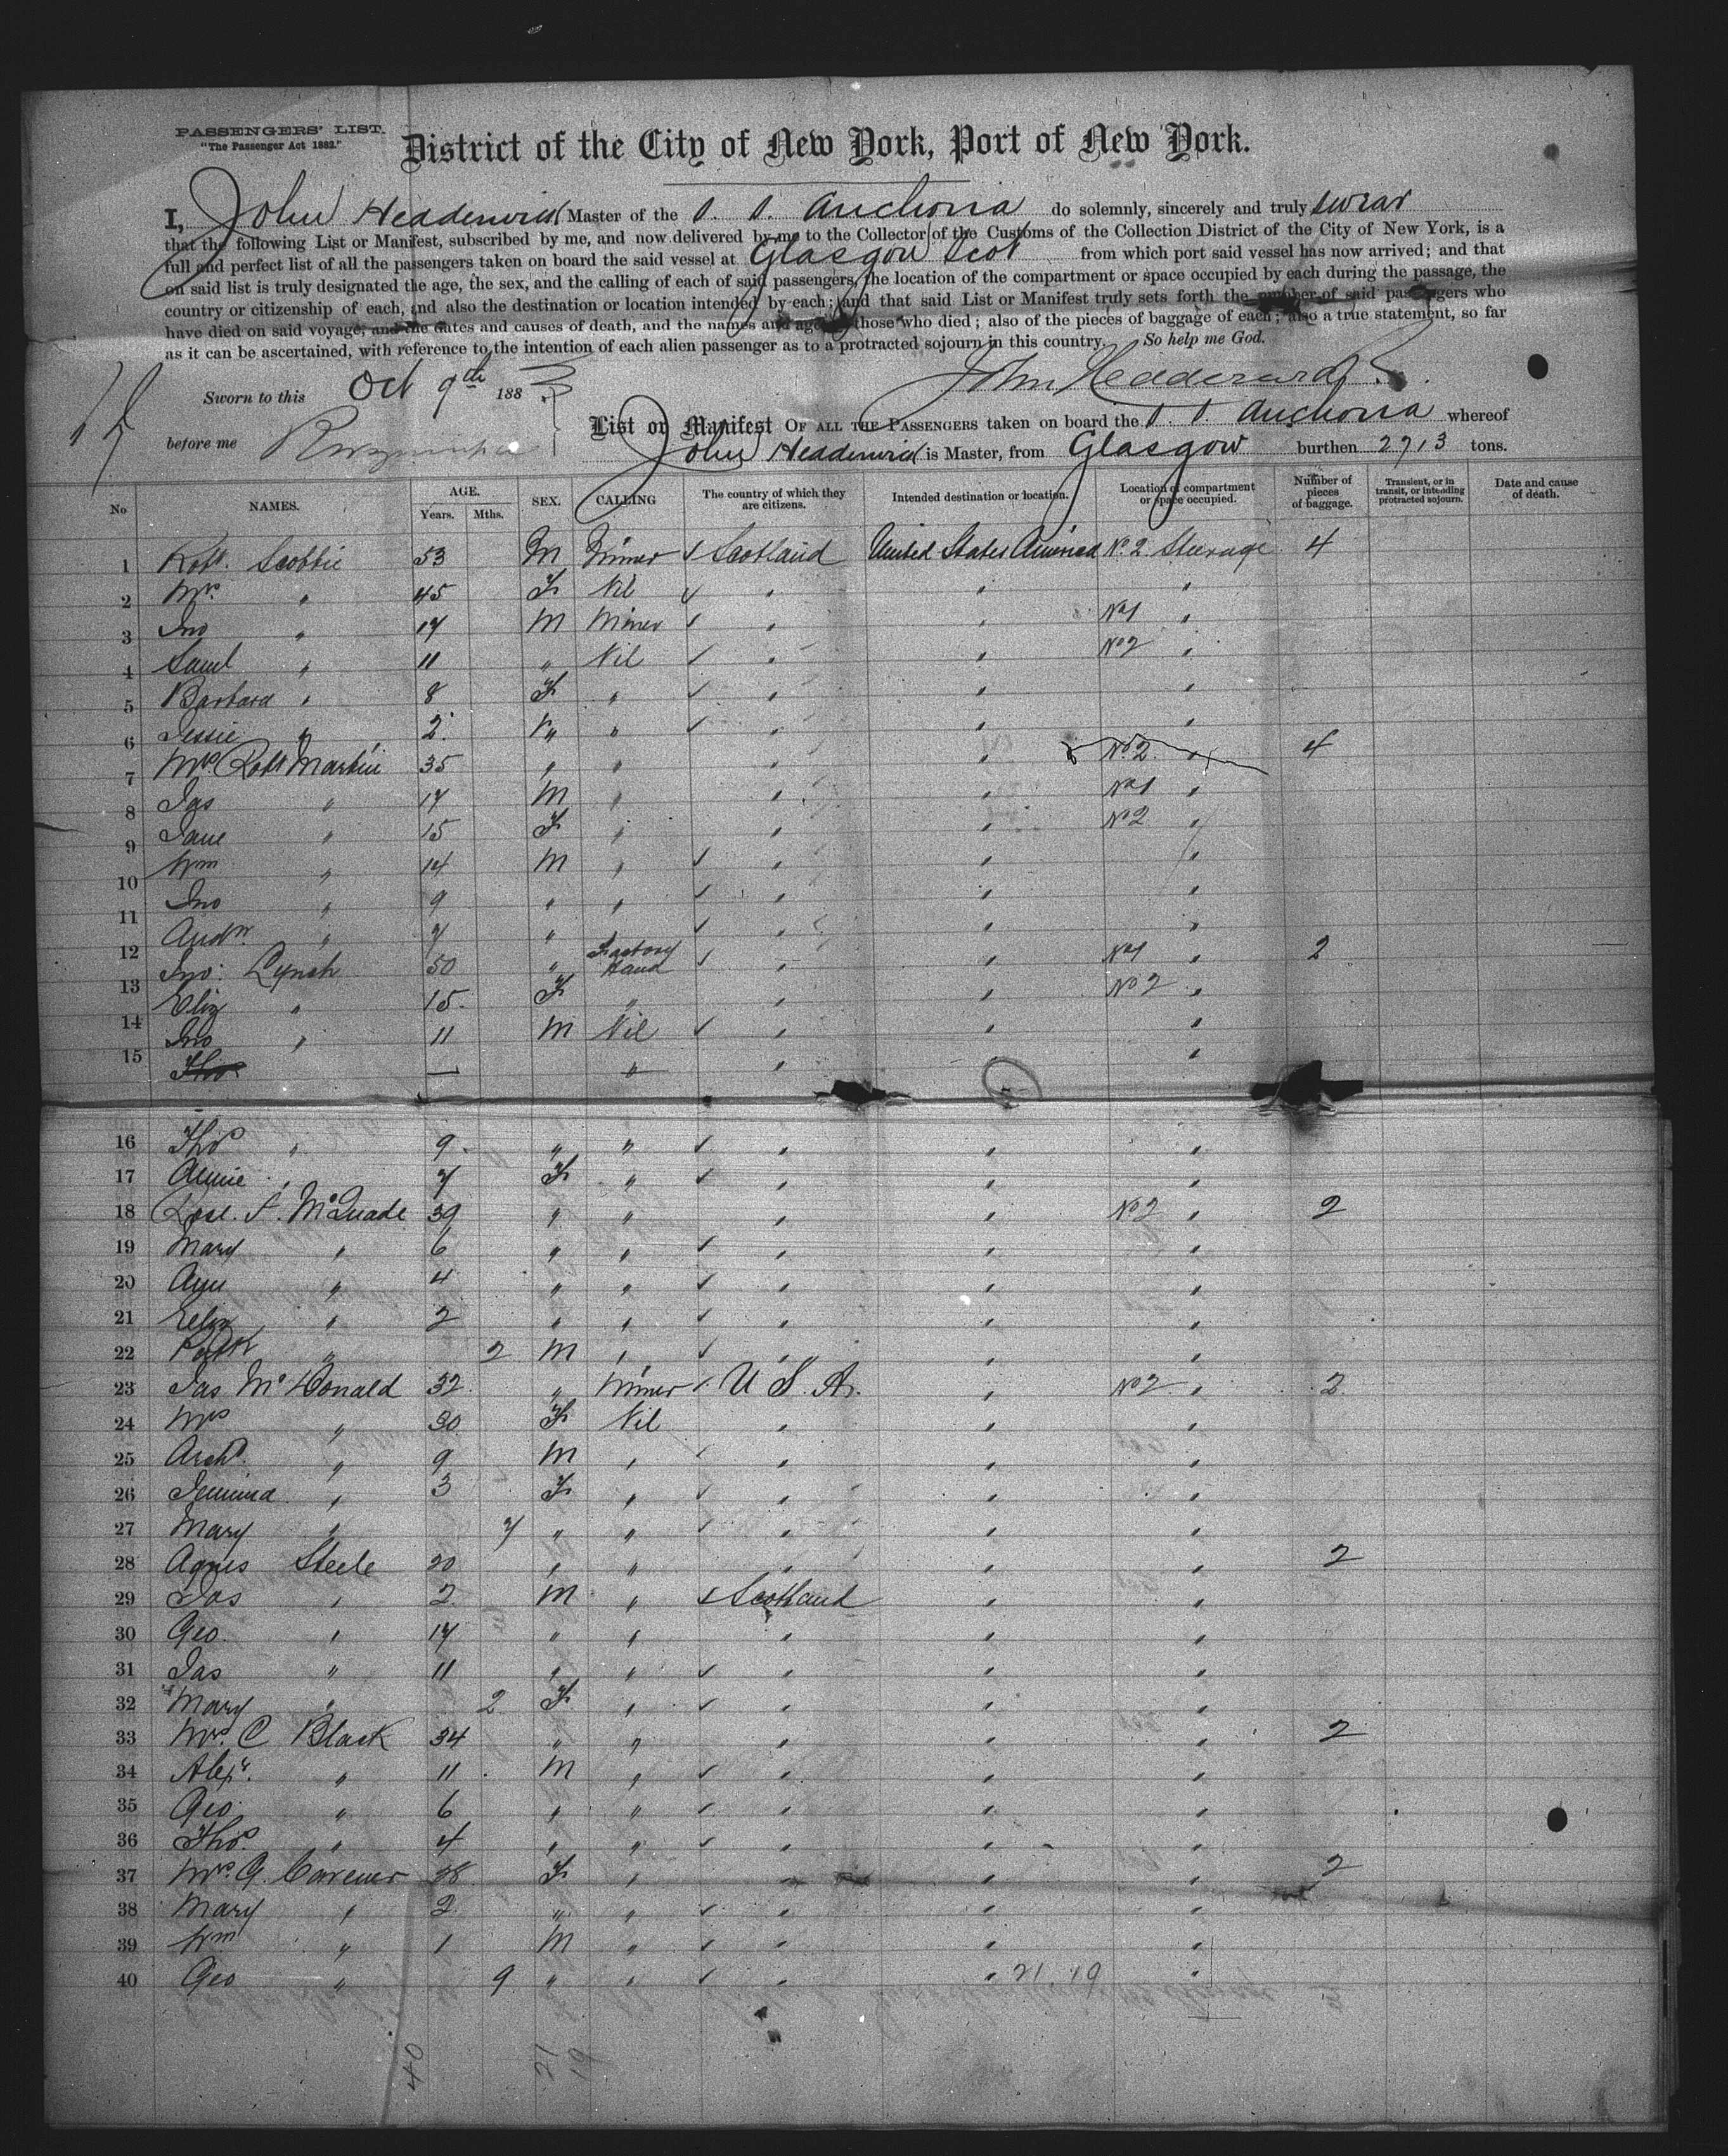 PASSENGERS' LIST.
"The Passenger Act 1882."
District of the City of New York, Port of New York.
I, John Hedderwick Master of the S. S. Anchoria do solemnly, sincerely and truly swear
that the following List or Manifest, subscribed by me, and now delivered by me to the Collector of the Customs of the Collection District of the City of New York, is a
full and perfect list of all the passengers taken on board the said vessel at Glasgow Scot from which port said vessel has now arrived; and that
on said list is truly designated the age, the sex, and the calling of each of said passengers, the location of the compartment or space occupied by each during the passage, the
country or citizenship of each, and also the destination or location intended by each; and that said List or Manifest truly sets forth the number of said passengers who
have died on said voyage, and the dates and causes of death, and the names and ages of those who died; also of the pieces of baggage of each; also a true statement, so far
as it can be ascertained, with reference to the intention of each alien passenger as to a protracted sojourn in this country. So help me God.
Sworn to this Oct 9th 188
John Hedderwick
before me
List or Manifest OF ALL THE PASSENGERS taken on board the S. S. Anchoria whereof
John Hedderwick is Master, from Glasgow burthen 2713 tons.
No NAMES. AGE. Years. Mths. SEX. CALLING The country of which they are citizens. Intended destination or location. Location of compartment or space occupied. Number of pieces of baggage. Transient, or in transit, or intending protracted sojourn. Date and cause of death.
1 Robt. Scobbie 53 M Miner Scotland United States America No. 2 Steerage 4
2 Mrs " 45 F Nil " " "
3 Jno " 17 M Miner " " No 1 "
4 Saml " 11 " Nil " " No 2 "
5 Barbara " 8 F " " " "
6 Jessie " 2 " " " " "
7 Mrs Robt Martin 35 " " " " No 2 " 4
8 Jas " 17 M " " " No 1 "
9 Jane " 15 F " " " No 2 "
10 Wm " 14 M " " " "
11 Jno " 9 " " " " "
12 Andw. " 7 " " " " "
13 Jno. Lynch 50 " Factory Hand " " No 1 " 2
14 Eliz " 15 F " " " No 2 "
15 Jno " 11 M Nil " " "
Thos — " " "
16 Thos " 9 " " " " "
17 Annie " 7 F " " " "
18 Rose. A. McQuade 39 " " " " No 2 " 2
19 Mary " 6 " " " " "
20 Ann " 4 " " " " "
21 Eliz " 2 " " " " "
22 Patk " 2 M " " " "
23 Jas McDonald 32 " Miner U. S. A. " No 2 " 2
24 Mrs " 30 F Nil " " "
25 Archd. " 9 M " " " "
26 Jemima " 3 F " " " "
27 Mary " 7 " " " " "
28 Agnes Steele 20 " " " " " 2
29 Jas " 2 M " Scotland " "
30 Geo. " 17 " " " " "
31 Jas " 11 " " " " "
32 Mary " 2 F " " " "
33 Mrs. C Black 34 " " " " " 2
34 Alexr. " 11 M " " " "
35 Geo. " 6 " " " " "
36 Thos. " 4 " " " " "
37 Mrs. G. 28 F " " " " 2
38 Mary " 2 " " " " "
39 Wm " 1 M " " " "
40 Geo " 9 " " " " 21. 19 "
40 21 19